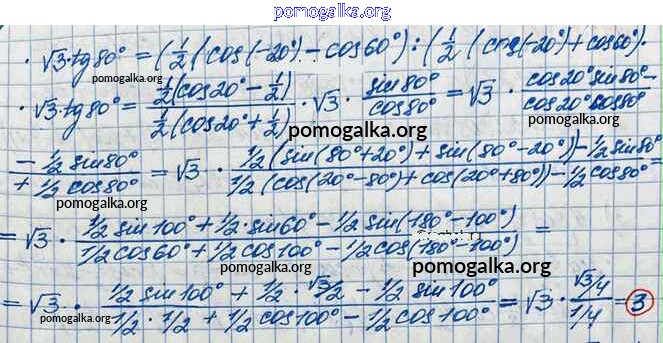 pomogalka.org
· √3·tg80° = (1/2(cos(-20°) - cos60°) : (1/2(cos(-20°) + cos60°)·
pomogalka.org
· √3·tg80° = 1/2(cos20° - 1/2) / 1/2(cos20° + 1/2) · √3 · sin80°/cos80° = √3 · cos20° sin80° - / cos20° cos80°
pomogalka.org
- 1/2 sin80° / + 1/2 cos80° = √3 · 1/2(sin(80°+20°) + sin(80°-20°)) - 1/2 sin80° / 1/2(cos(20°-80°) + cos(20°+80°)) - 1/2 cos80° =
pomogalka.org
= √3 · 1/2 sin100° + 1/2·sin60° - 1/2 sin(180°-100°) / 1/2 cos60° + 1/2 cos100° - 1/2 cos(180°-100°) =
pomogalka.org
pomogalka.org
= √3 · 1/2 sin100° + 1/2·√3/2 - 1/2 sin100° / 1/2·1/2 + 1/2 cos100° - 1/2 cos100° = √3 · √3/4 / 1/4 = 3
pomogalka.org
pomogalka.org